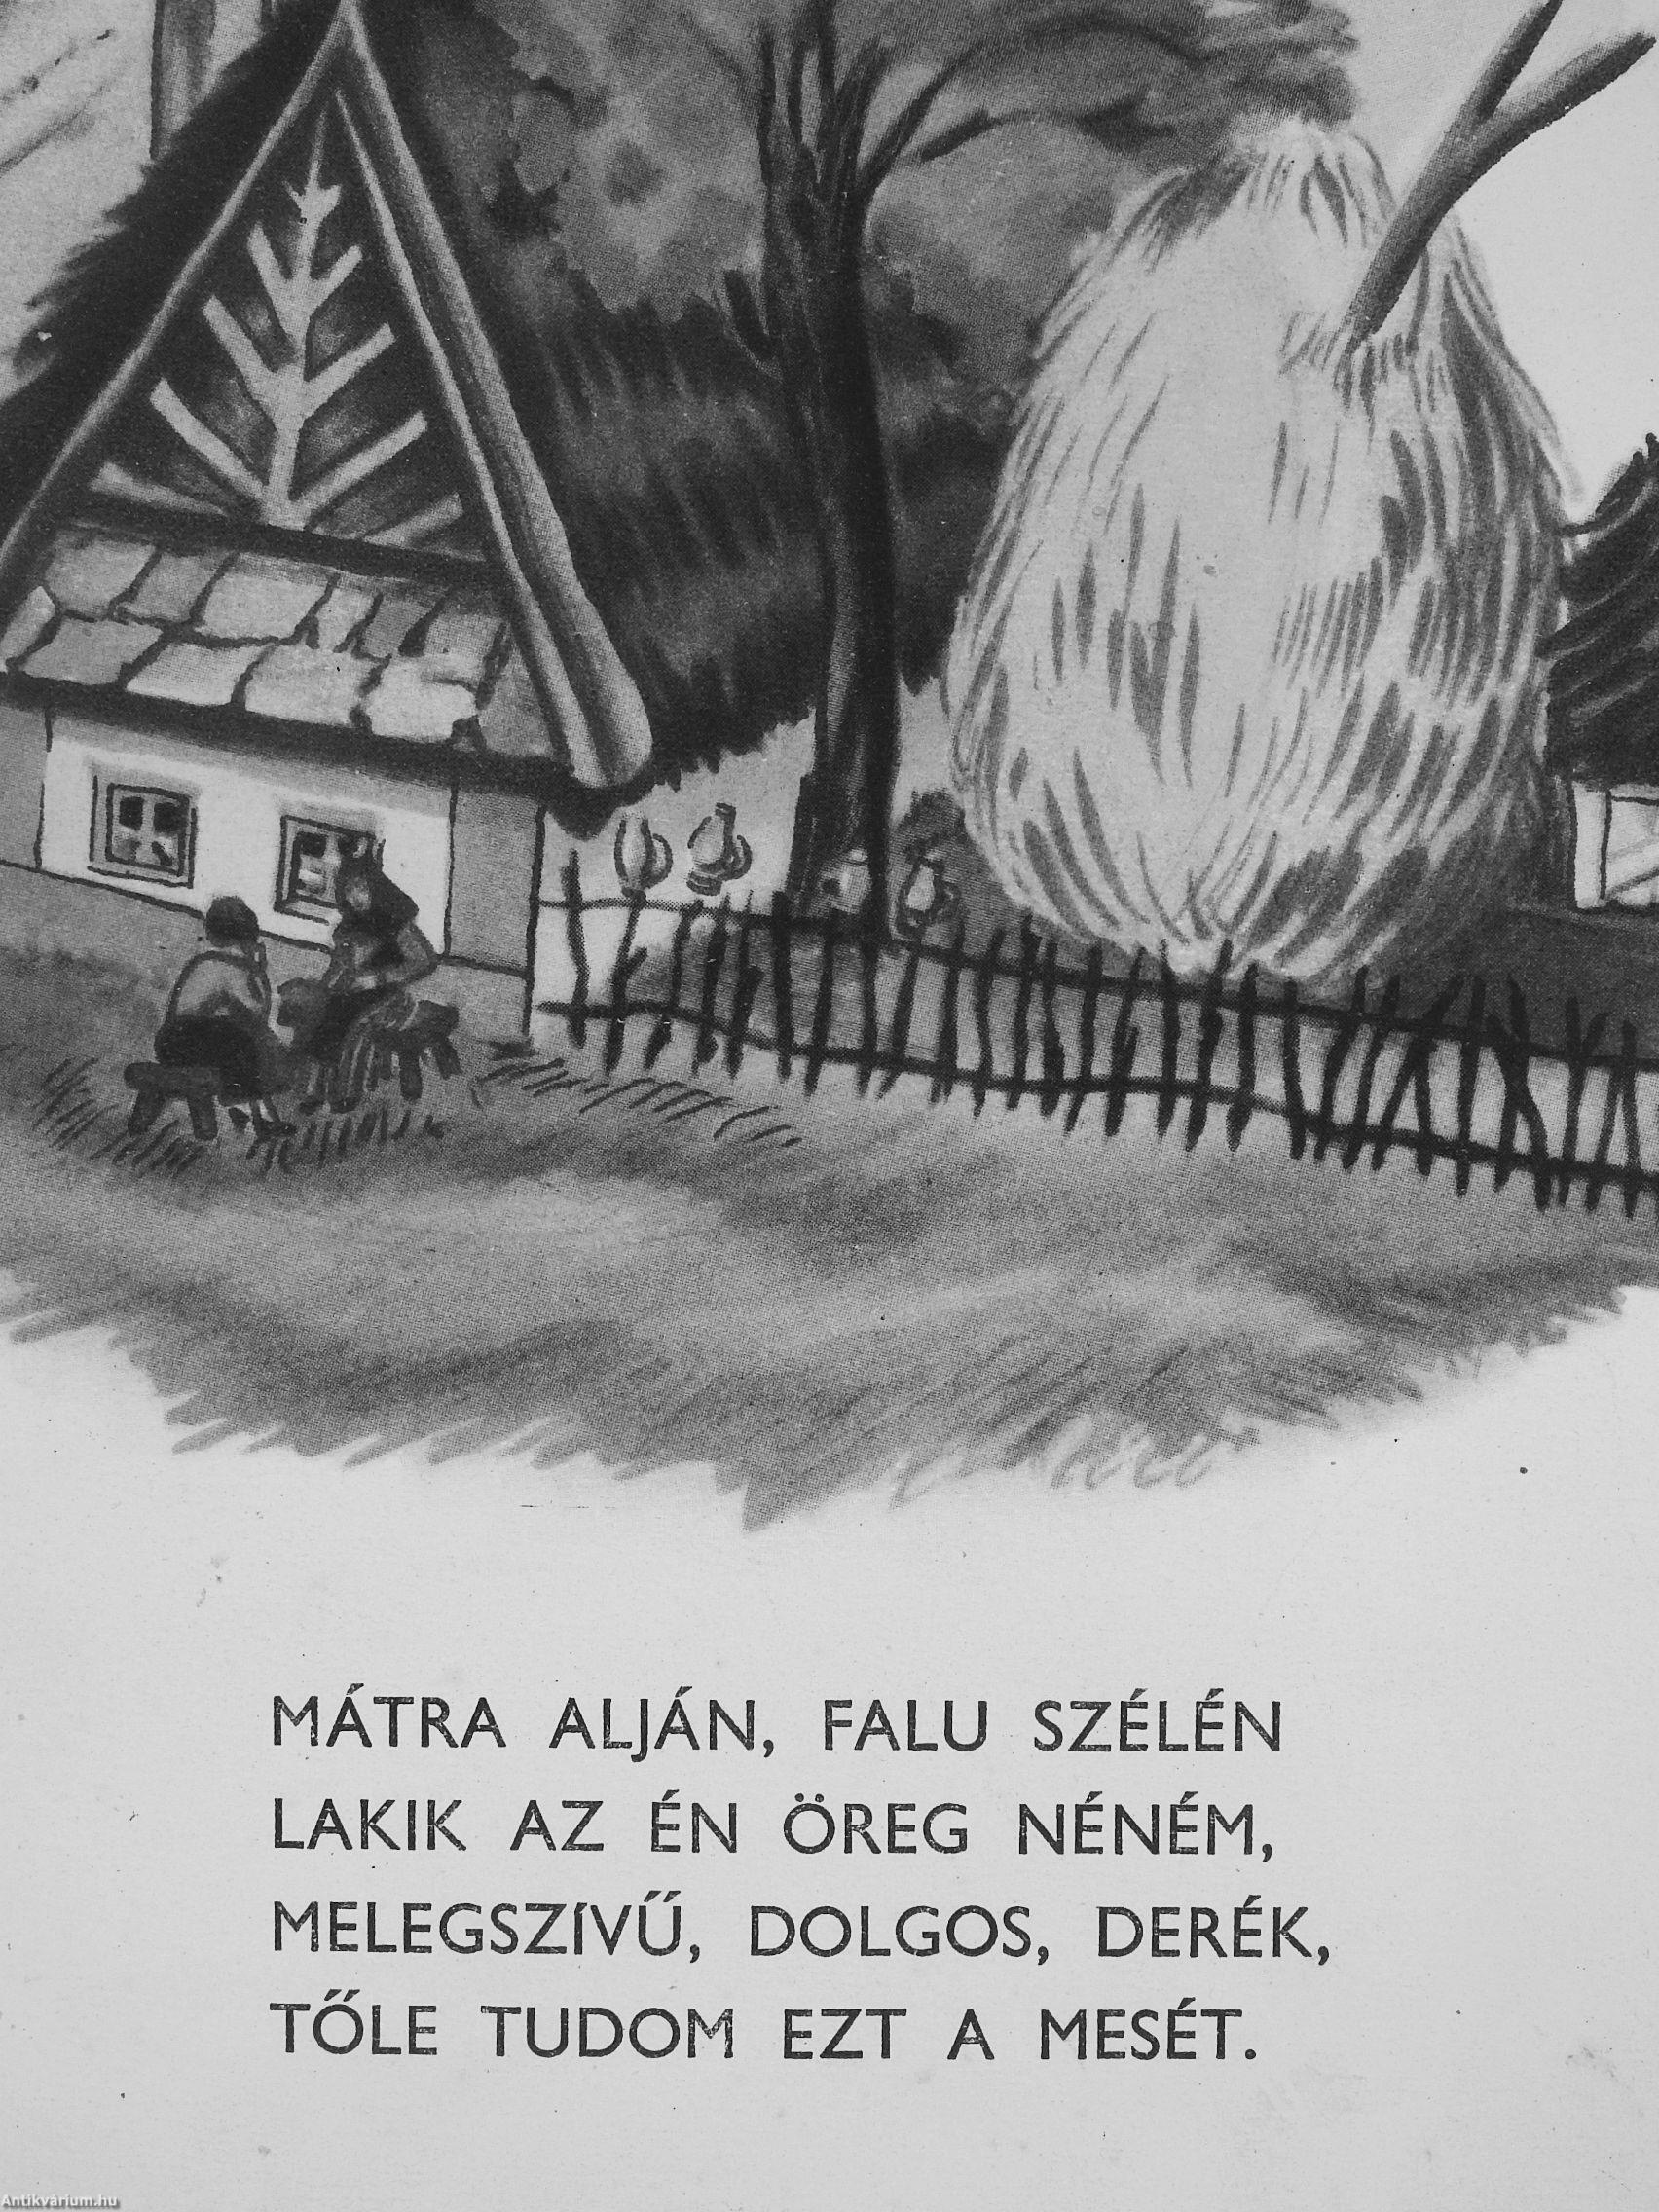 MÁTRA ALJÁN, FALU SZÉLÉN
LAKIK AZ ÉN ÖREG NÉNÉM,
MELEGSZÍVŰ, DOLGOS, DERÉK,
TŐLE TUDOM EZT A MESÉT.
Antikvárium.hu